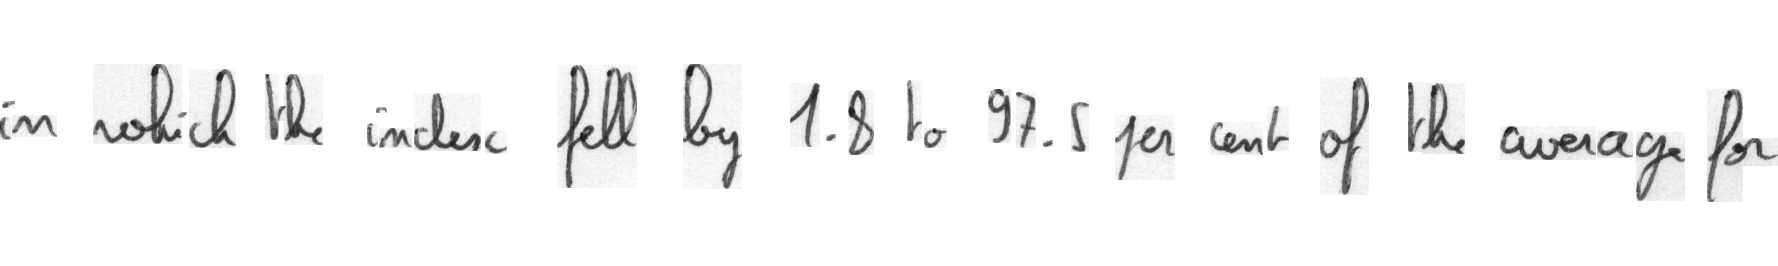 in which the index fell by 1.8 to 97.5 per cent of the average for